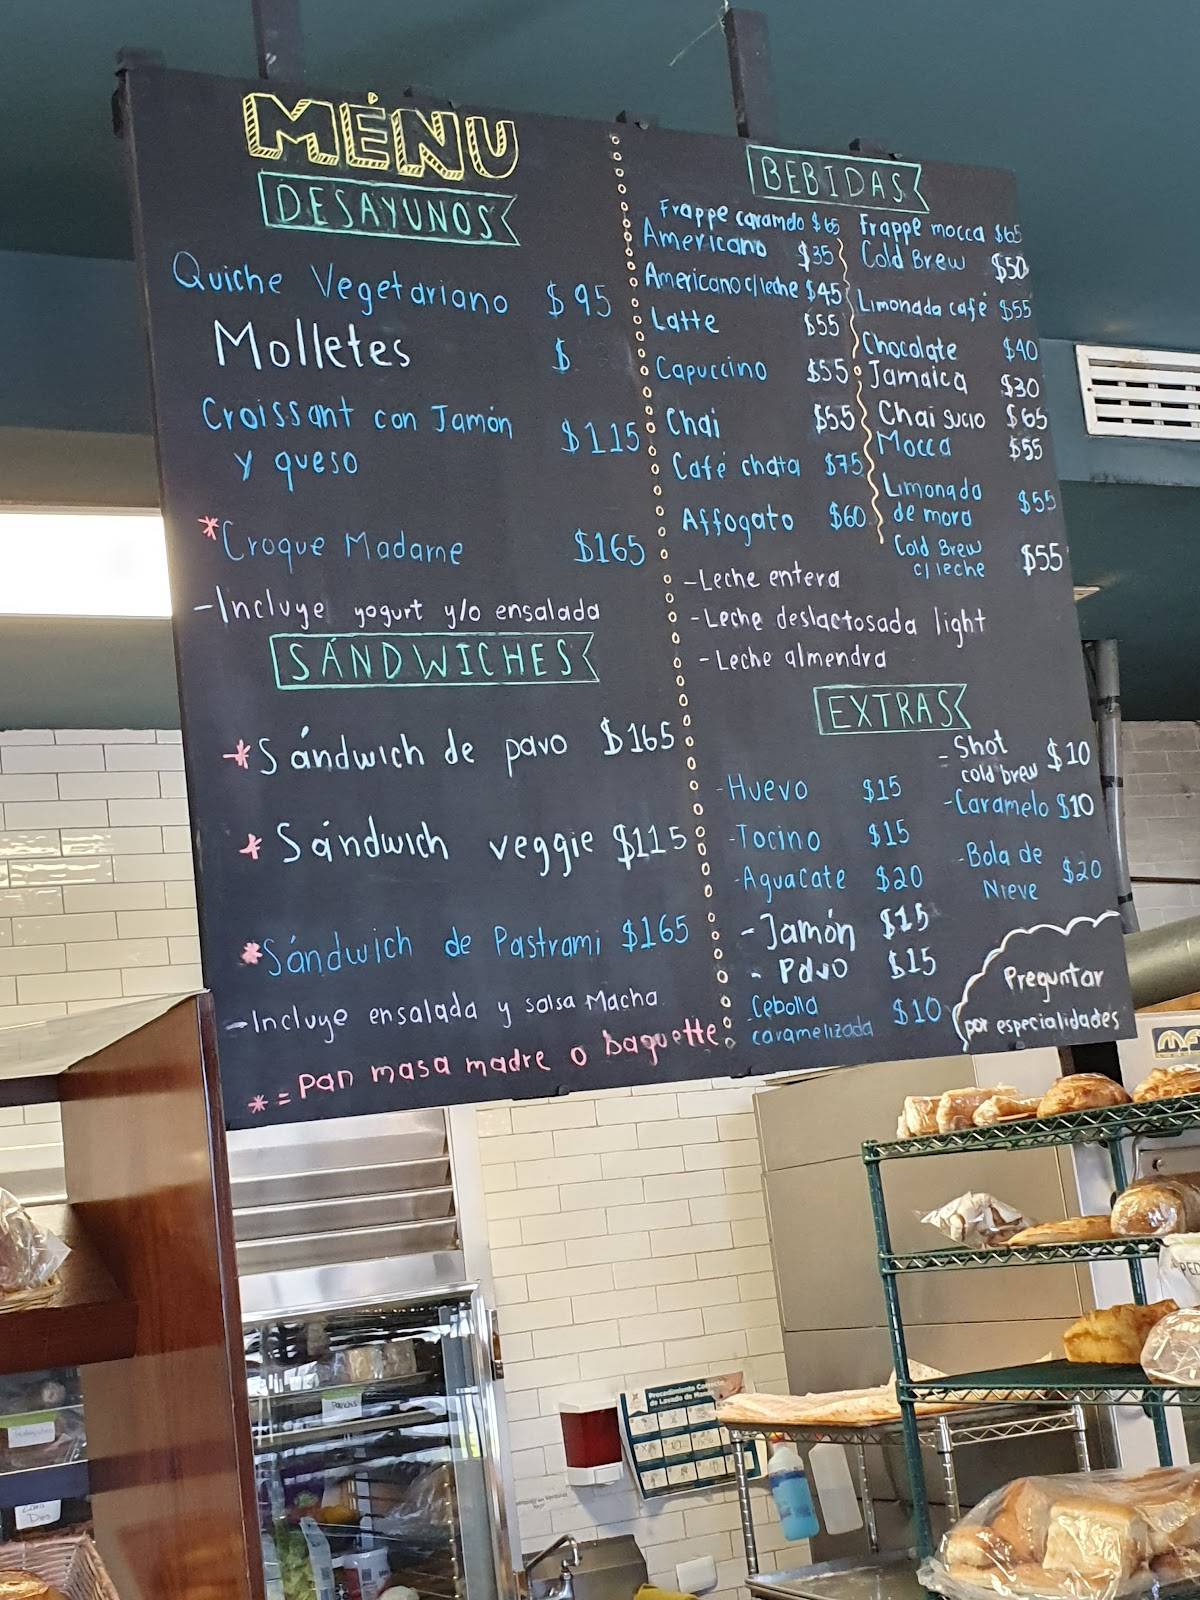 MÉNU
DESAYUNOS
Quiche Vegetariano $95
Molletes $
Croissant con Jamón $115
y queso
*Croque Madame $165
-Incluye yogurt y/o ensalada
SÁNDWICHES
*Sándwich de pavo $165
*Sándwich veggie $115
*Sándwich de Pastrami $165
-Incluye ensalada y salsa Macha
*= pan masa madre o baguette
BEBIDAS
Frappe caramelo $65
Americano $35
Americano c/leche $45
Latte $55
Capuccino $55
Chai $55
Café chata $75
Affogato $60
Frappe mocca $65
Cold Brew $50
Limonada café $55
Chocolate $40
Jamaica $30
Chai sucio $65
Mocca $55
Limonada
de mora $55
Cold Brew
c/leche $55
-Leche entera
-Leche deslactosada light
-Leche almendra
EXTRAS
-Huevo $15
-Tocino $15
-Aguacate $20
-Jamón $15
-Pavo $15
Cebolla
caramelizada $10
-Shot
cold brew $10
-Caramelo $10
-Bola de
Nieve $20
Preguntar
por especialidades
Procedimiento Correcto
de Lavado de Manos